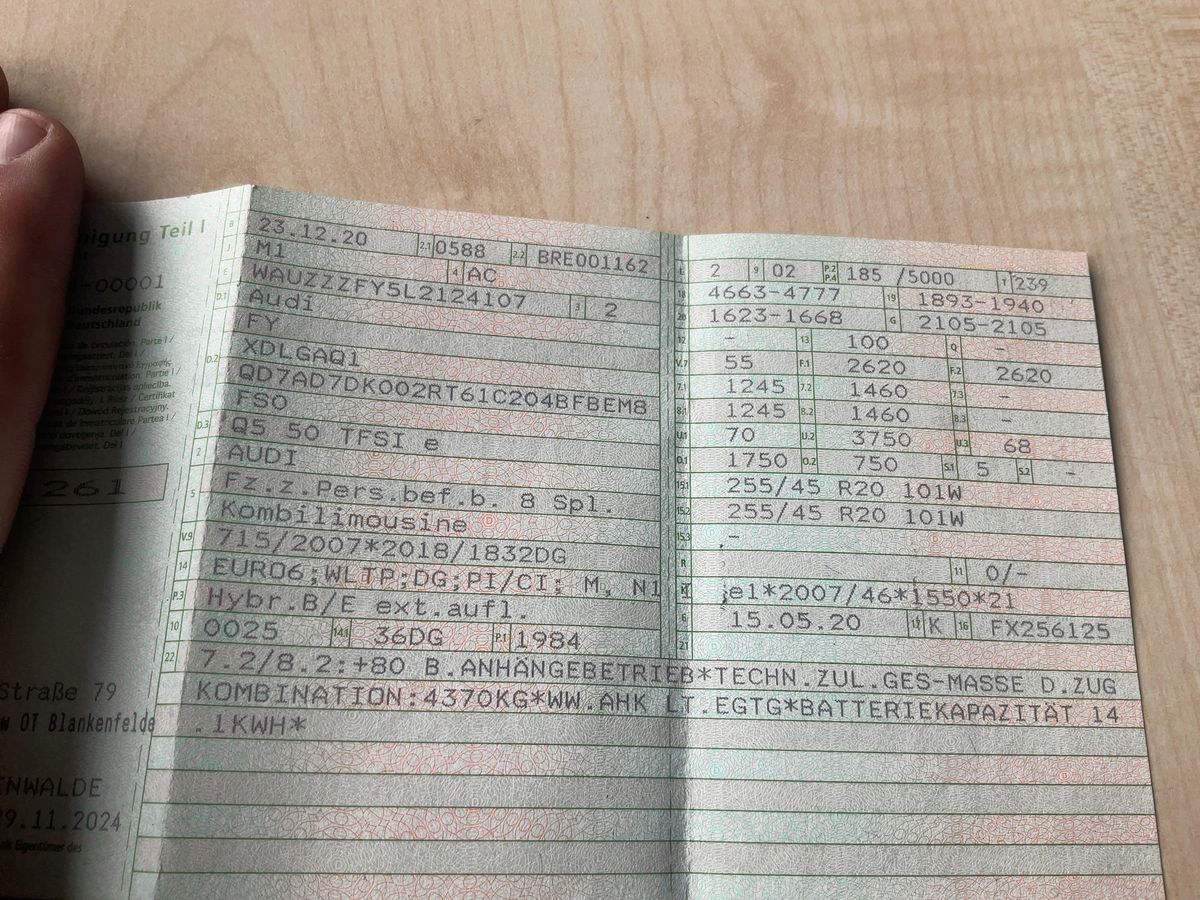 igung Teil I
-00001
undesrepublik
eutschland
261
Straße 79
w OT Blankenfelde
ENWALDE
9.11.2024
als Eigentümer des
B 23.12.20 2.1 0588 2.2 BRE001162
J M1 4 AC
E WAUZZZFY5L2124107 3 2
D.1 Audi
FY
D.2 XDLGAQ1
QD7AD7DK002RT61C204BFBEM8
FSO
D.3 Q5 50 TFSI e
2 AUDI
5 Fz.z.Pers.bef.b. 8 Spl.
Kombilimousine
V.9 715/2007*2018/1832DG
14 EURO6;WLTP;DG;PI/CI; M, N1
P.3 Hybr.B/E ext.aufl.
10 0025 14.1 36DG P.1 1984
L 2 9 02 P.2 P.4 185 /5000 T 239
18 4663-4777 19 1893-1940
20 1623-1668 G 2105-2105
12 - 13 100 Q -
V.7 55 F.1 2620 F.2 2620
7.1 1245 7.2 1460 7.3 -
8.1 1245 8.2 1460 8.3 -
U.1 70 U.2 3750 U.3 68
O.1 1750 O.2 750 S.1 5 S.2 -
15.1 255/45 R20 101W
15.2 255/45 R20 101W
15.3 -
R 11 0/-
K e1*2007/46*1550*21
6 15.05.20 17 K 16 FX256125
21
22 7.2/8.2:+80 B.ANHÄNGEBETRIEB*TECHN.ZUL.GES-MASSE D.ZUG
KOMBINATION:4370KG*WW.AHK LT.EGTG*BATTERIEKAPAZITÄT 14
.1KWH*